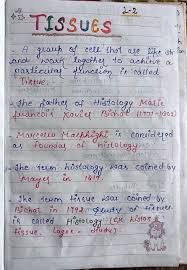 L-2
TISSUES
A group of cell that are like as
and work together to achieve a
particular function is called
Tissue.
The father of Histology Marie
Francois Xavier Bichat (1771-1802)
Marcello Malphighi is considered
as founder of histology
The term histology was coined by
Mayer in 1819.
The term tissue was coined by
Bichat in 1792 study of tissues
is called Histology (
tissue, logos - study)